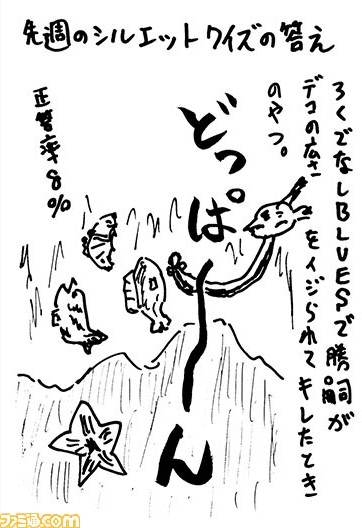 先週のシルエットクイズの答え
ろくでなしBLUESで勝嗣が
デコの広さをイジられてキレたとき
のやつ。
どっぱーーん
正答率8%
ファミ通.com